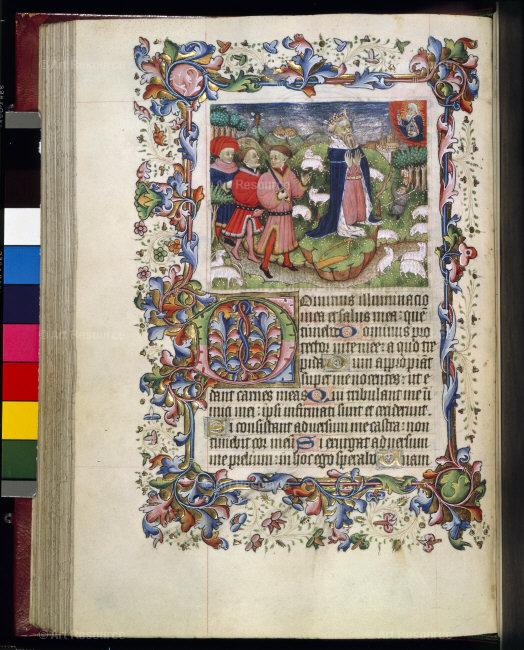 Dominus illuminatio
mea et salus mea: quē
timebo Dominus pro
tector vite mee: a quo tre
Dum appropiant
super me nocentes: ut e
dant carnes meas Qui tribulant me in
imici mei: ipsi infirmati sunt et ceciderunt
Si consistant adversum me castra: non
timebit cor meū Si exurgat adversum
me prelium: in hoc ego sperabo Unam
© Art Resource
© Art Resource